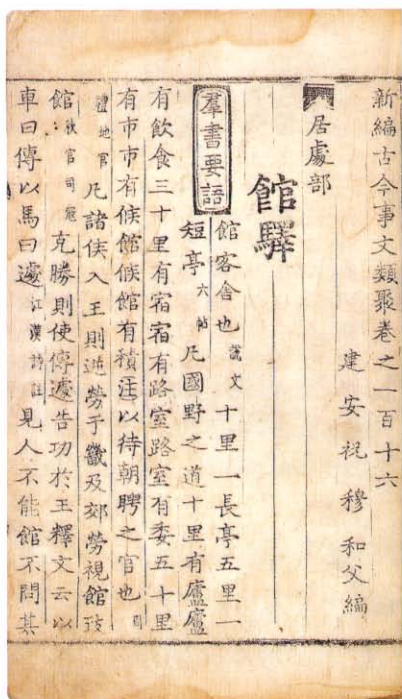 新編古今事文類聚卷之一百十六
建安祝穆和父編
居處部
館驛
羣書要語
館客舍也說文十里一長亭五里一
短亭六帖凡國野之道十里有廬廬
有飲食三十里有宿宿有路室路室有委五十里
有市市有候館候館有積注以待朝聘之官也周
禮地官凡諸侯入王則逆勞于畿及郊勞視館致
館秋官司寇克勝則使傳遽告功於王釋文云以
車曰傳以馬曰遽江漢詩註見人不能館不問其